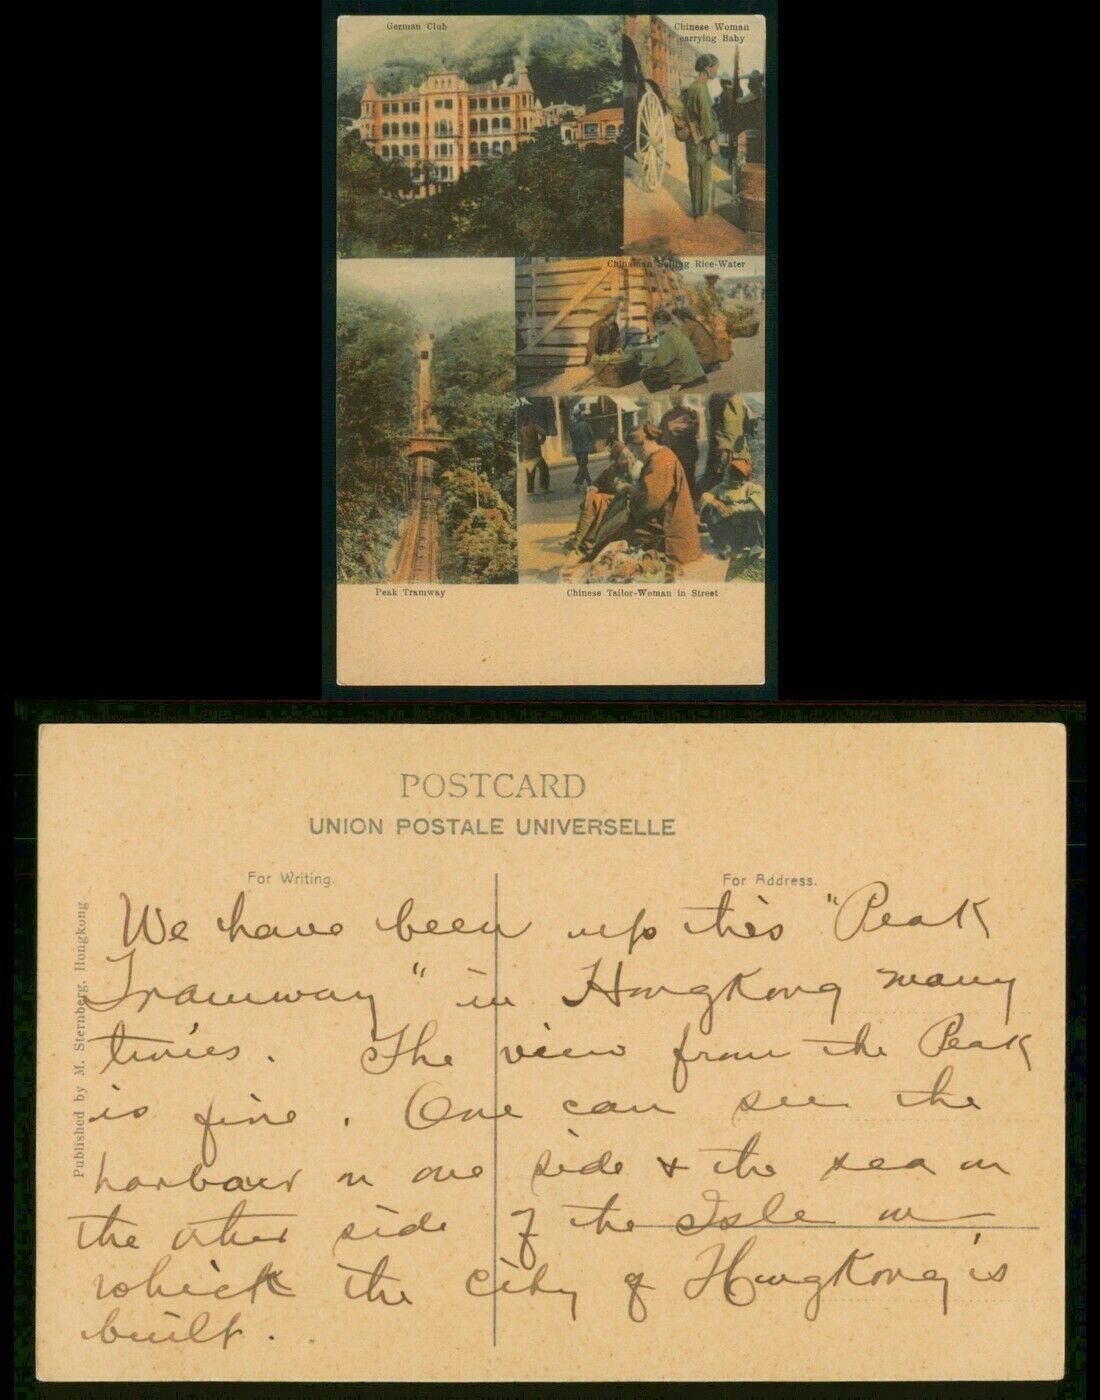 German Club
Chinese Woman
carrying Baby
Chinaman Selling Rice-Water
Peak Tramway
Chinese Tailor-Woman in Street
POSTCARD
UNION POSTALE UNIVERSELLE
For Writing.
For Address.
Published by M. Sternberg, Hongkong
We have been up this "Peak
Tramway" in HongKong many
times. The view from the Peak
is fine. One can see the
harbour on one side & the sea on
the other side of the Isle on
which the city of HongKong is
built.